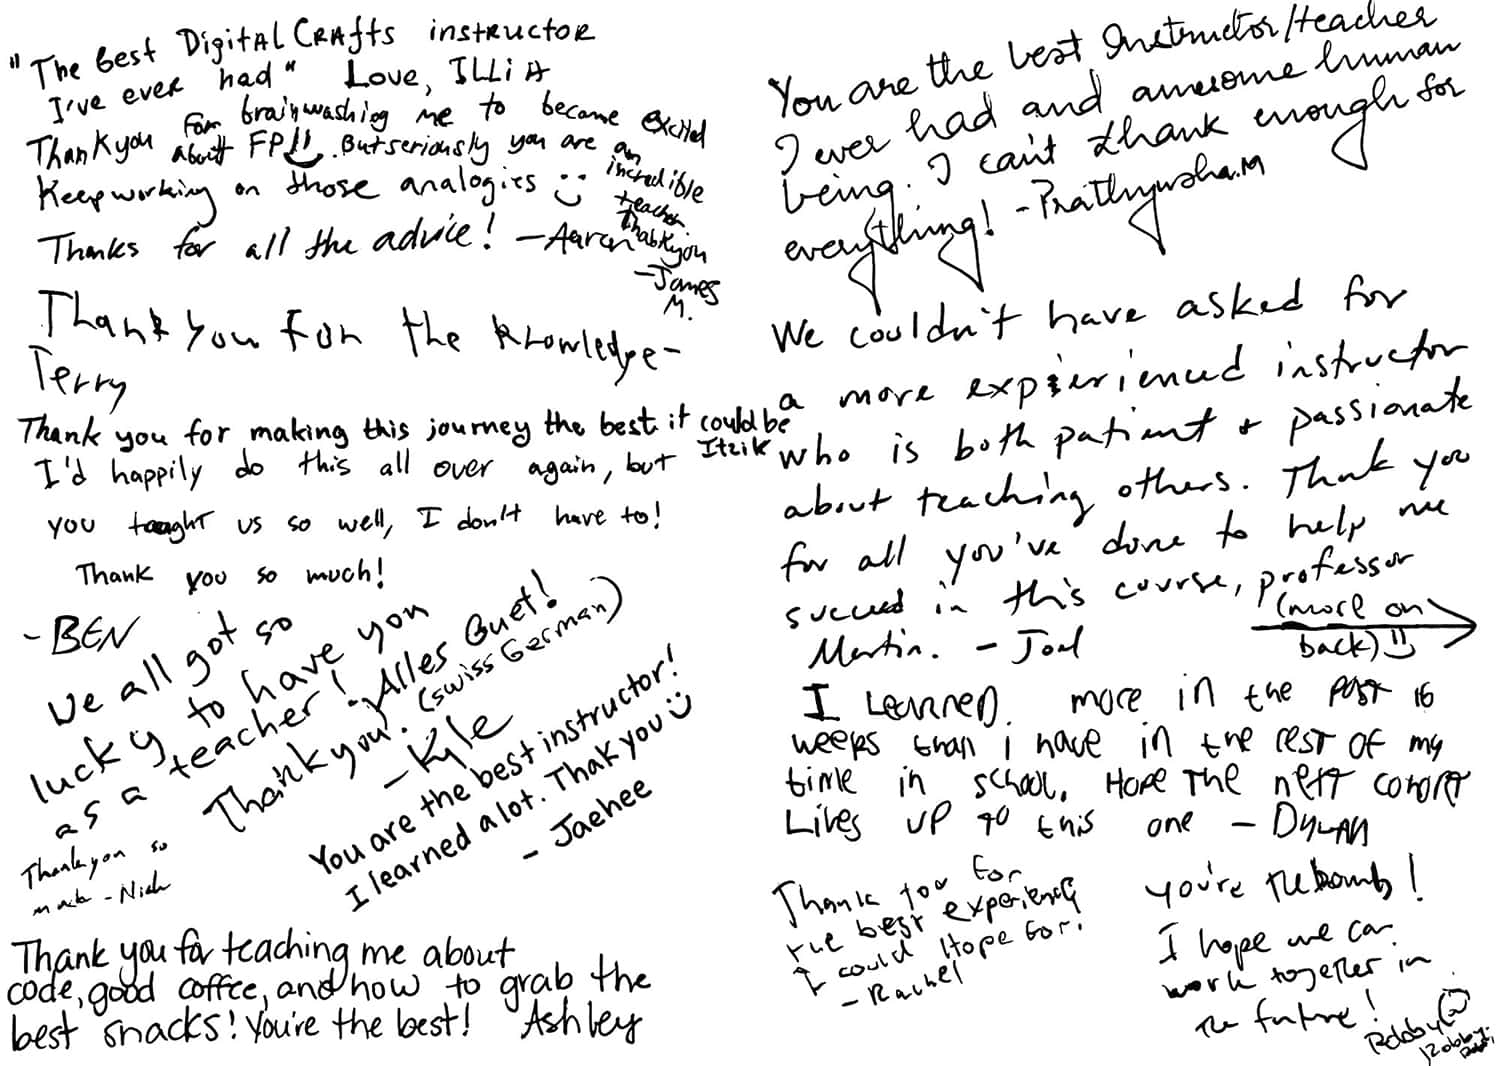 "The best DigitalCrafts instructor
I've ever had" Love, ILLiA
Thankyou for brainwashing me to became excited
about FP!! But seriously you are an
incredible
teacher.
Thabkyou
-James
M.
Keep working on those analogies
Thanks for all the advice! -Aaron
Thank you for the knowledge-
Terry
Thank you for making this journey the best it could be
Itzik
I'd happily do this all over again, but
you taught us so well, I don't have to!
Thank you so much!
- BEN
We all got so
lucky to have you
as a teacher! Alles Guet!
(swiss German)
Thank you!
- Kyle
You are the best instructor!
I learned a lot. Thak you
- Jaehee
Thank you so
much - Nick
Thank you for teaching me about
code, good coffee, and how to grab the
best snacks! You're the best! Ashley
You are the best Instructor/teacher
I ever had and awesome human
being. I can't thank enough for
everything! - Prathyusha.M
We couldn't have asked for
a more experienced instructor
who is both patient + passionate
about teaching others. Thank you
for all you've done to help me
succeed in this course, professor
Martin. - Joel
(more on
back)
I Learned more in the past 16
weeks than i have in the rest of my
time in school. Hope the next cohort
Lives up to this one - Dylan
Thank you for
the best experience
I could Hope for.
- Rachel
you're the bomb!
I hope we can
work together in
the future!
Robby
Robby